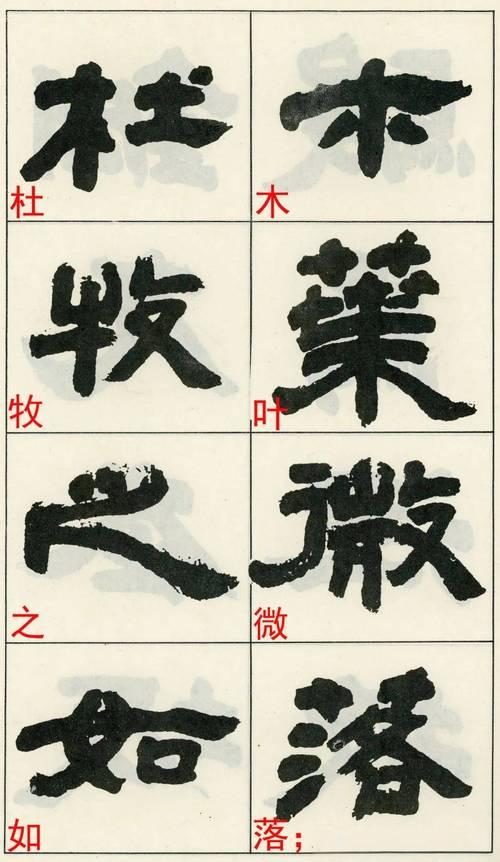 木葉微落
木叶微落；
杜牧之如
杜牧之如